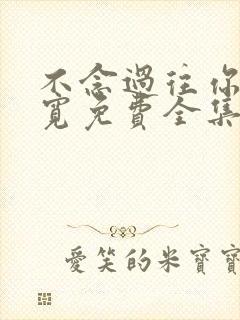 不念過往你
寬免費全集
愛笑的米寶寶